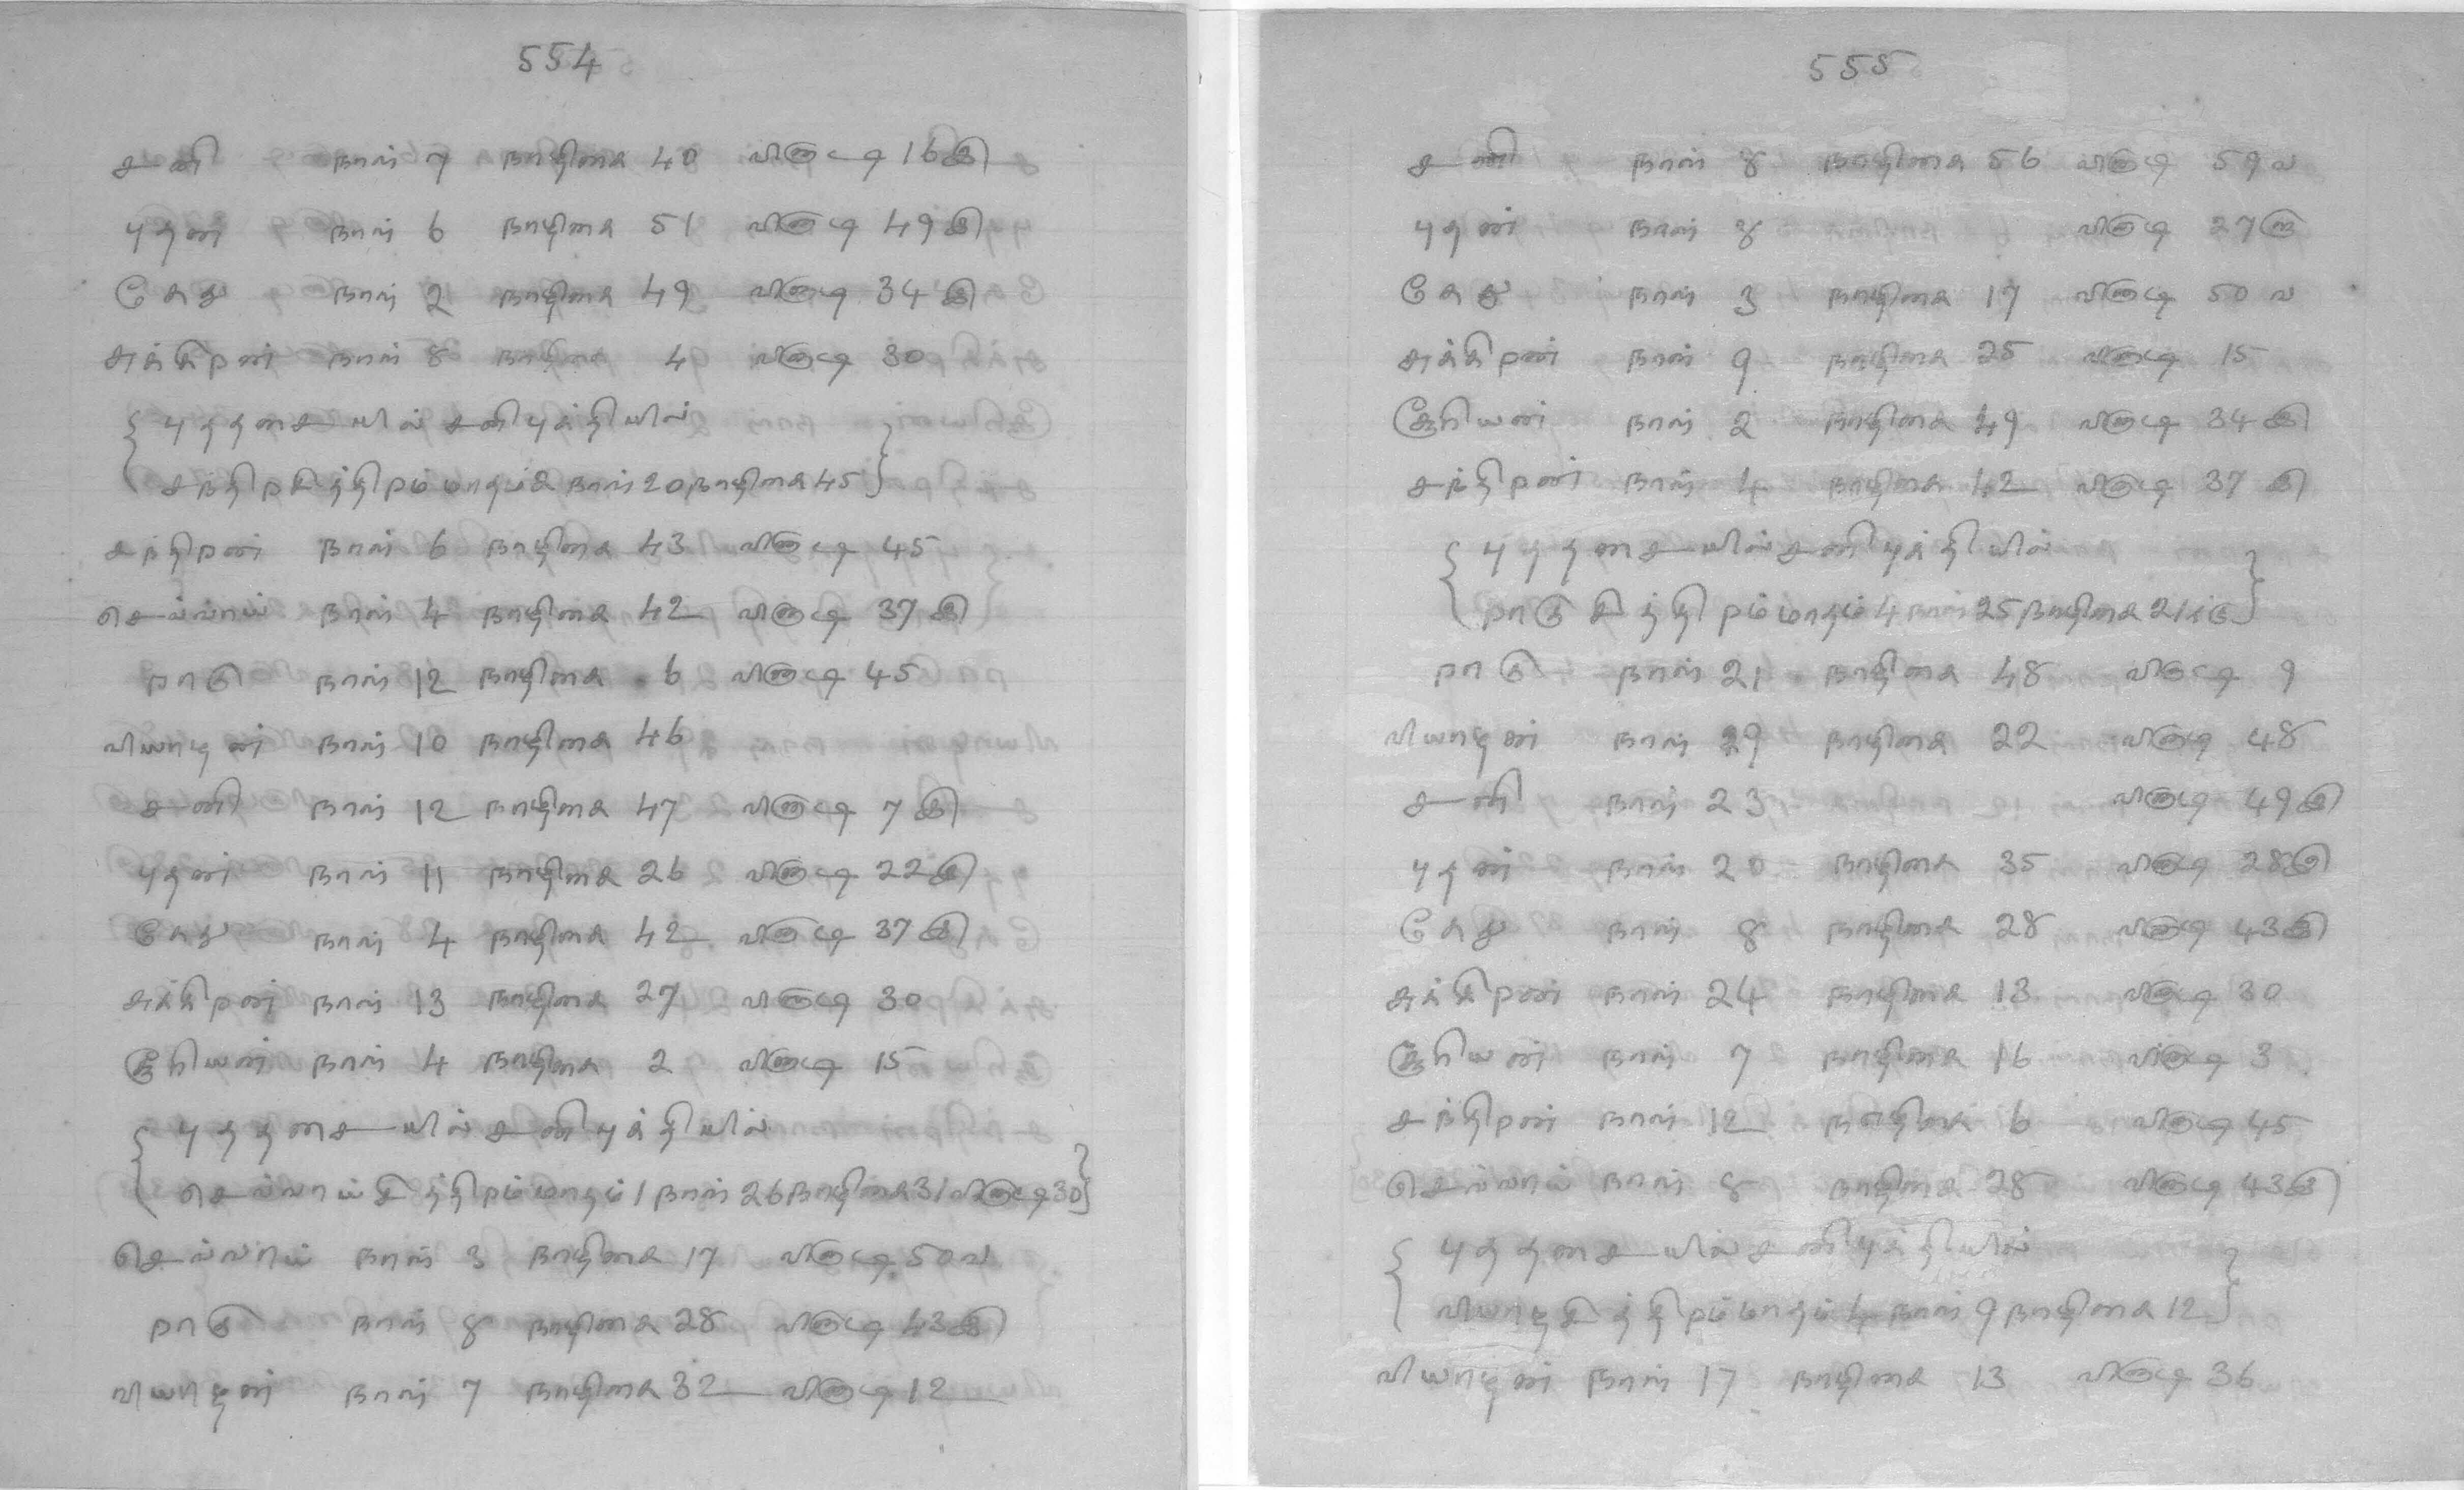 554
சனி நாள் 7 நாழிகை 40 வினாடி 16இ
புதன் நாள் 6 நாழிகை 51 வினாடி 49இ
கேது நாள் 2 நாழிகை 49 வினாடி 34இ
சுக்கிறன் நாள் 8 நாழிகை 4 வினாடி 30
{ புததசையில் சனிபுக்தியில்
சந்திறசித்திறம் மாதம் 2 நாள் 20 நாழிகை 45 }
சந்திறன் நாள் 6 நாழிகை 43 வினாடி 45
செவ்வாய் நாள் 4 நாழிகை 42 வினாடி 37இ
றாகு நாள் 12 நாழிகை 6 வினாடி 45
வியாழன் நாள் 10 நாழிகை 46
சனி நாள் 12 நாழிகை 47 வினாடி 7இ
புதன் நாள் 11 நாழிகை 26 வினாடி 22இ
கேது நாள் 4 நாழிகை 42 வினாடி 37இ
சுக்கிறன் நாள் 13 நாழிகை 27 வினாடி 30
சூரியன் நாள் 4 நாழிகை 2 வினாடி 15
{ புததசையில் சனிபுக்தியில்
செவ்வாய்சித்திறம் மாதம் 1 நாள் 26 நாழிகை 31 வினாடி 30 }
செவ்வாய் நாள் 3 நாழிகை 17 வினாடி 50வ
றாகு நாள் 8 நாழிகை 28 வினாடி 43இ
வியாழன் நாள் 7 நாழிகை 32 வினாடி 12
555
சனி நாள் 8 நாழிகை 56 வினாடி 59வ
புதன் நாள் 8 வினாடி 27
கேது நாள் 3 நாழிகை 17 வினாடி 50வ
சுக்கிறன் நாள் 9 நாழிகை 25 வினாடி 15
சூரியன் நாள் 2 நாழிகை 49 வினாடி 34இ
சந்திறன் நாள் 4 நாழிகை 42 வினாடி 37இ
{ புததசையில் சனிபுக்தியில்
றாகு சித்திறம் மாதம் 4 நாள் 25 நாழிகை 21க்கு }
றாகு நாள் 21 நாழிகை 48 வினாடி 9
வியாழன் நாள் 29 நாழிகை 22 வினாடி 48
சனி நாள் 23 வினாடி 49இ
புதன் நாள் 20 நாழிகை 35 வினாடி 28இ
கேது நாள் 8 நாழிகை 28 வினாடி 43இ
சுக்கிறன் நாள் 24 நாழிகை 13 வினாடி 30
சூரியன் நாள் 7 நாழிகை 16 வினாடி 3
சந்திறன் நாள் 12 நாழிகை 6 வினாடி 45
செவ்வாய் நாள் 8 நாழிகை 28 வினாடி 43இ
{ புததசையில் சனிபுக்தியில்
வியாழசித்திறம் மாதம் 4 நாள் 9 நாழிகை 12 }
வியாழன் நாள் 17 நாழிகை 13 வினாடி 36